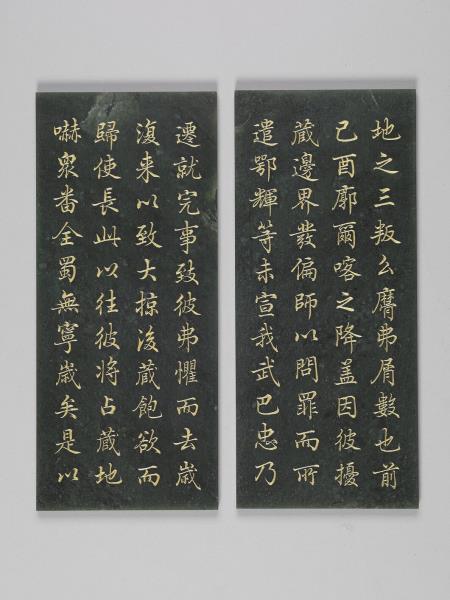 地之三叛么䯢弗屑數也前
己酉廓爾喀之降盖因彼擾
蔵邊界發偏師以問罪而所
遣鄂輝等未宣我武巴忠乃
遷就完事致彼弗懼而去嵗
復来以致大掠後蔵飽欲而
歸使長此以往彼将占蔵地
嚇衆畨全蜀無寧嵗矣是以